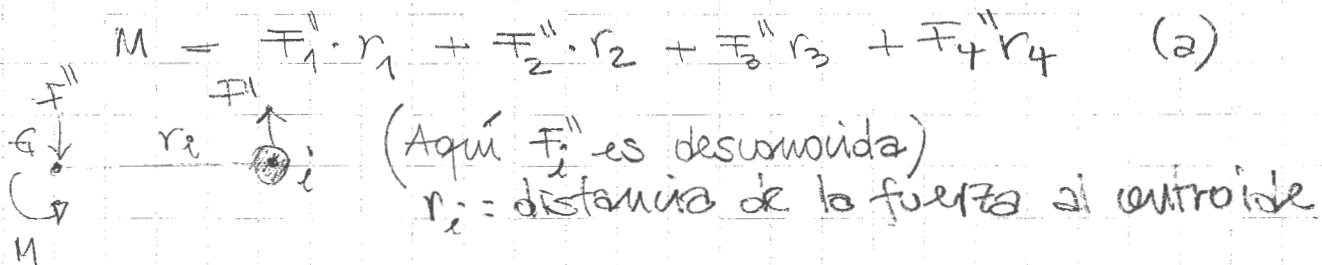 M = F₁'' · r₁ + F₂'' · r₂ + F₃'' r₃ + F₄'' r₄ (a)
F'' F''
G rᵢ i (Aquí Fᵢ'' es desconocida)
rᵢ = distancia de la fuerza al centroide
M